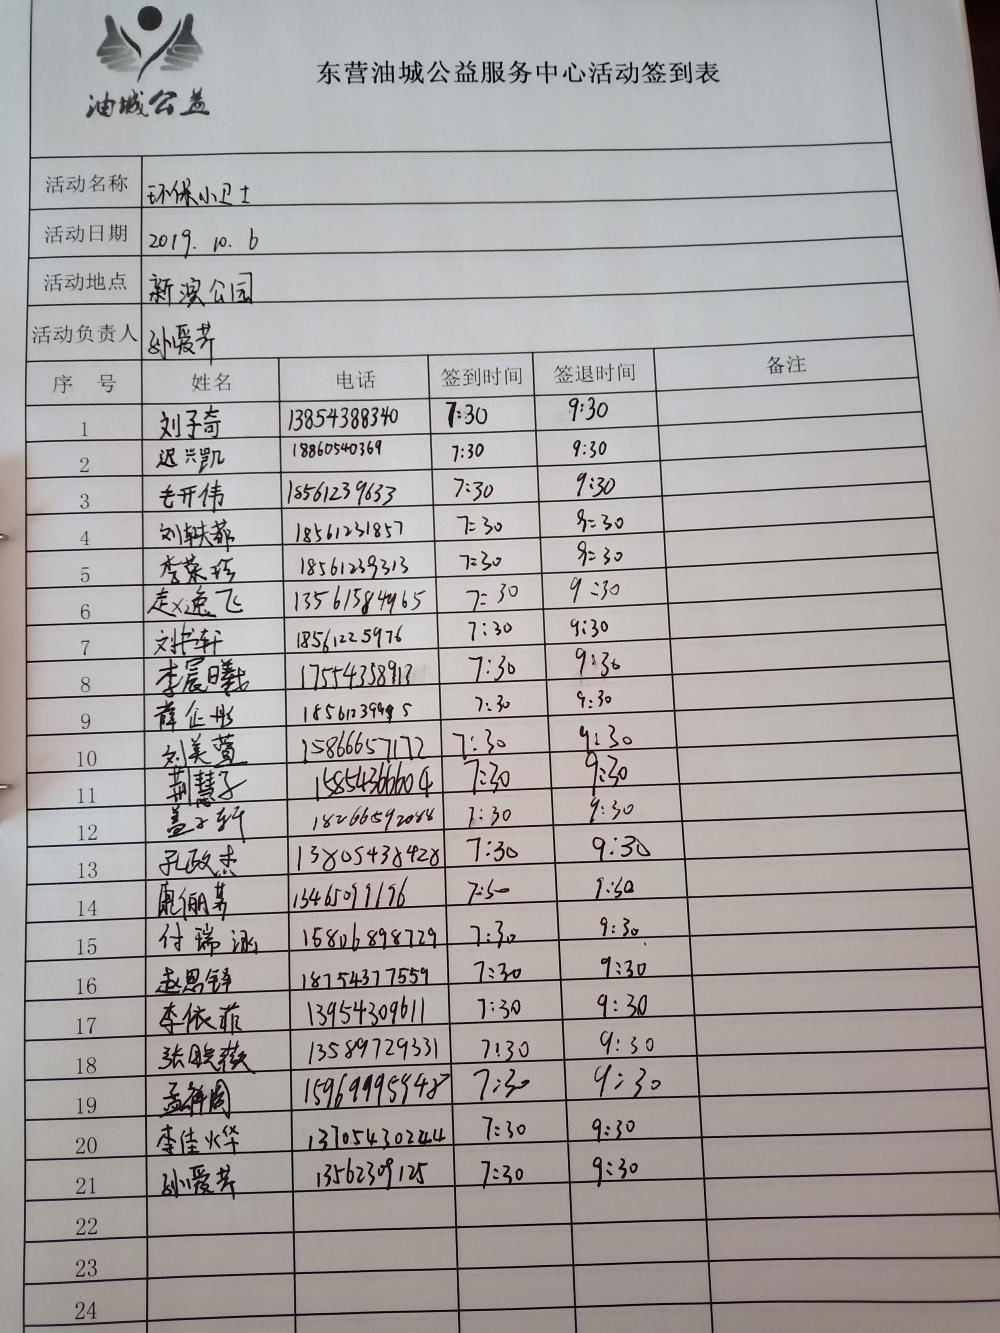 油城公益
东营油城公益服务中心活动签到表
活动名称 环保小卫士
活动日期 2019. 10. 6
活动地点 新滨公园
活动负责人 孙爱芹
序 号 姓名 电话 签到时间 签退时间 备注
1 刘子奇 13854388340 7:30 9:30
2 迟兴凯 18860540369 7:30 9:30
3 毛开伟 18561239633 7:30 9:30
4 刘轶都 18561231857 7:30 9:30
5 李荣 18561239313 7:30 9:30
6 赵逸飞 13561584965 7:30 9:30
7 刘书轩 18561225976 7:30 9:30
8 李宸曦 17554358913 7:30 9:30
9 薛企彤 7:30 9:30
10 刘美萱 15866657172 7:30 9:30
11 荆慧子 15854366604 7:30 9:30
12 盖子轩 18266592088 7:30 9:30
13 孔政杰 13805438428 7:30 9:30
14 13465099196 7:30 9:30
15 付瑞涵 15806898729 7:30 9:30
16 赵恩铎 18754377559 7:30 9:30
17 李依菲 13954309611 7:30 9:30
18 张皓薇 13589729331 7:30 9:30
19 孟祥周 7:30 9:30
20 李佳烨 13705430244 7:30 9:30
21 孙爱芹 13562309125 7:30 9:30
22
23
24